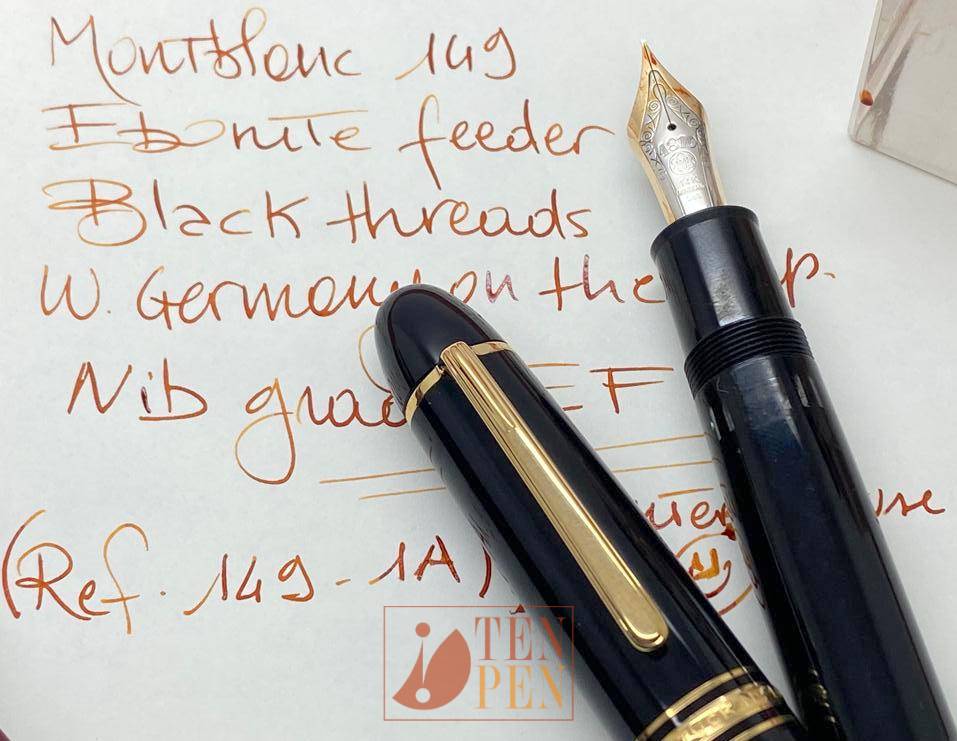 Montblanc 149
Ebonite feeder
Black threads
W. Germany on the
Nib EF
(Ref. 149-1A)
4810
14K
585
TÊN
PEN